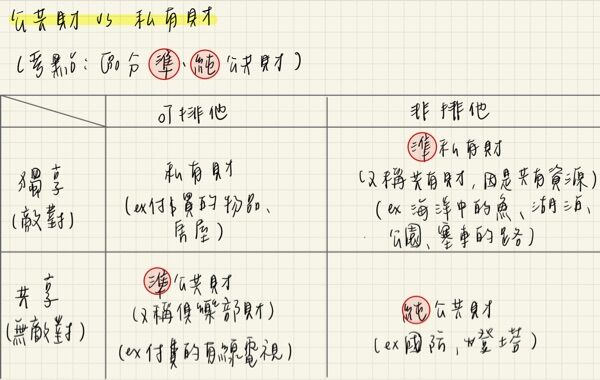 公共財 vs 私有財
(考點:區分準、純公共財)
可排他
非排他
獨享
(敵對)
私有財
(ex付費的物品、
房屋)
準私有財
(又稱共有財,因是共有資源)
(ex海洋中的魚、湖泊、
公園、塞車的路)
共享
(無敵對)
準公共財
(又稱俱樂部財)
(ex付費的有線電視)
純公共財
(ex國防,燈塔)